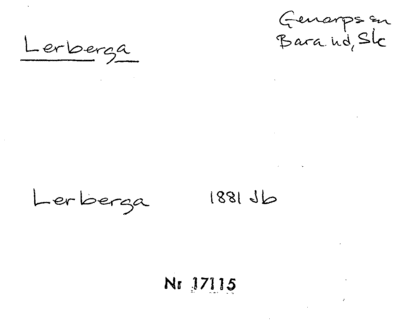 Genarps sn
Lerberga
Bara hd, Sk
Lerberga 1881 Jb
Nr 17115